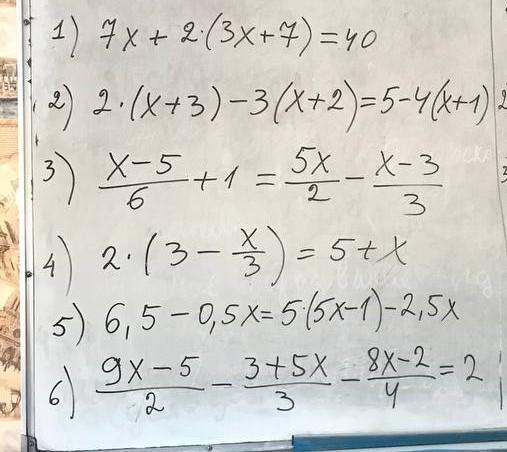 1) 7x + 2·(3x+7) = 40
2) 2·(x+3) – 3(x+2) = 5 – 4(x+1)
3) (x–5)/6 + 1 = 5x/2 – (x–3)/3
4) 2·(3 – x/3) = 5 + x
5) 6,5 – 0,5x = 5·(5x–1) – 2,5x
6) (9x–5)/2 – (3+5x)/3 – (8x–2)/4 = 2